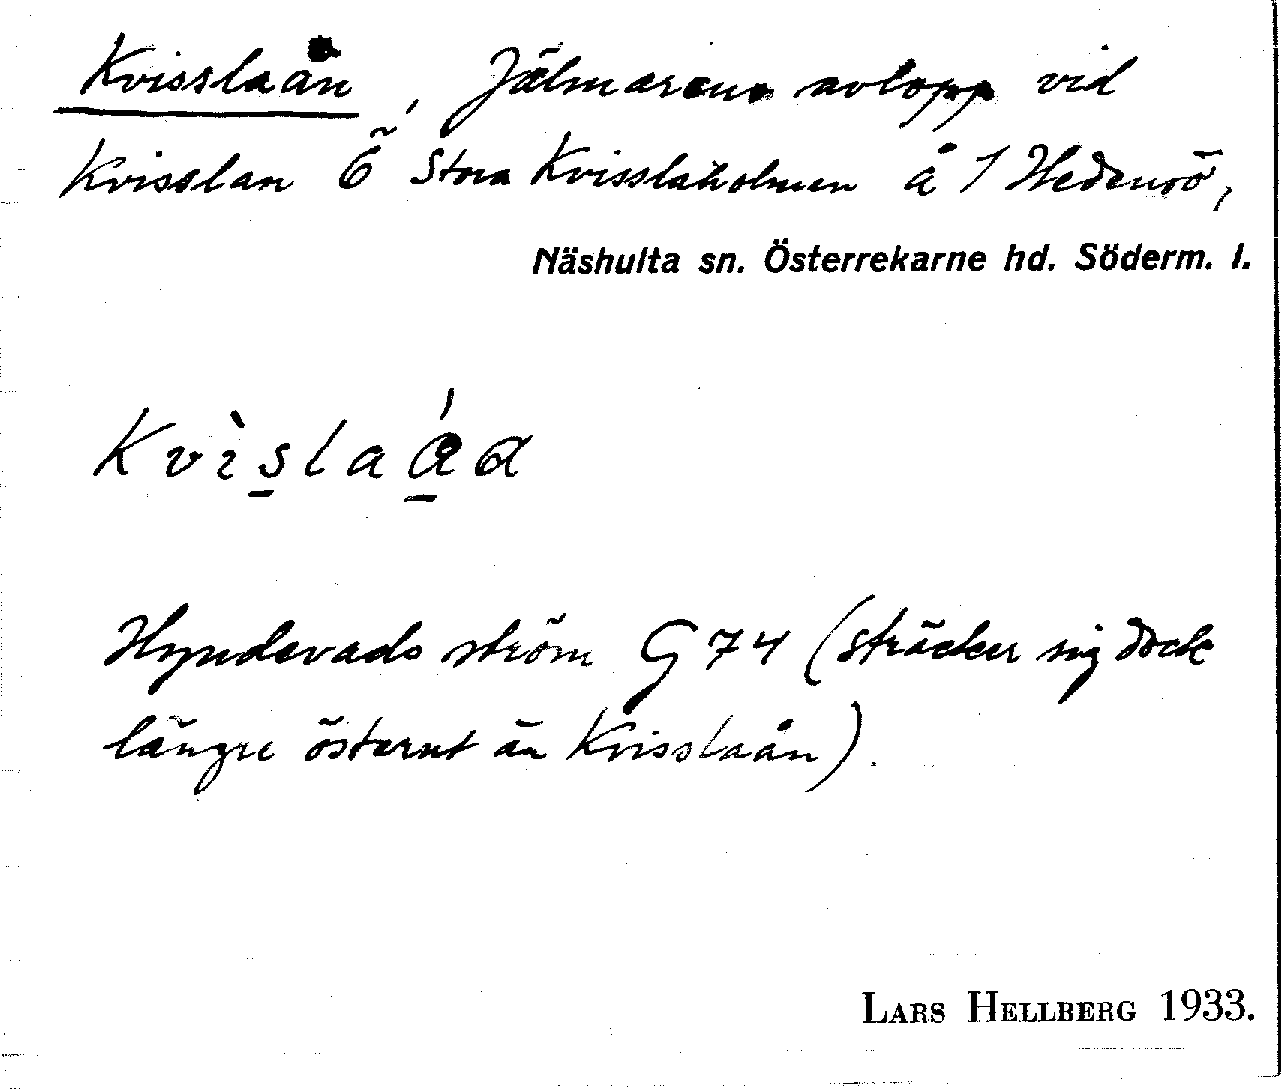 Kvisslaån, Jälmarens avlopp vid
Kvisslan Ö Stora Kvisslaholmen å 1 Hedensö,
Näshulta sn. Österrekarne hd. Söderm. l.
Hyndevads ström G 74 (sträcker sig dock
längre österut än Kvisslaån).
LARS HELLBERG 1933.